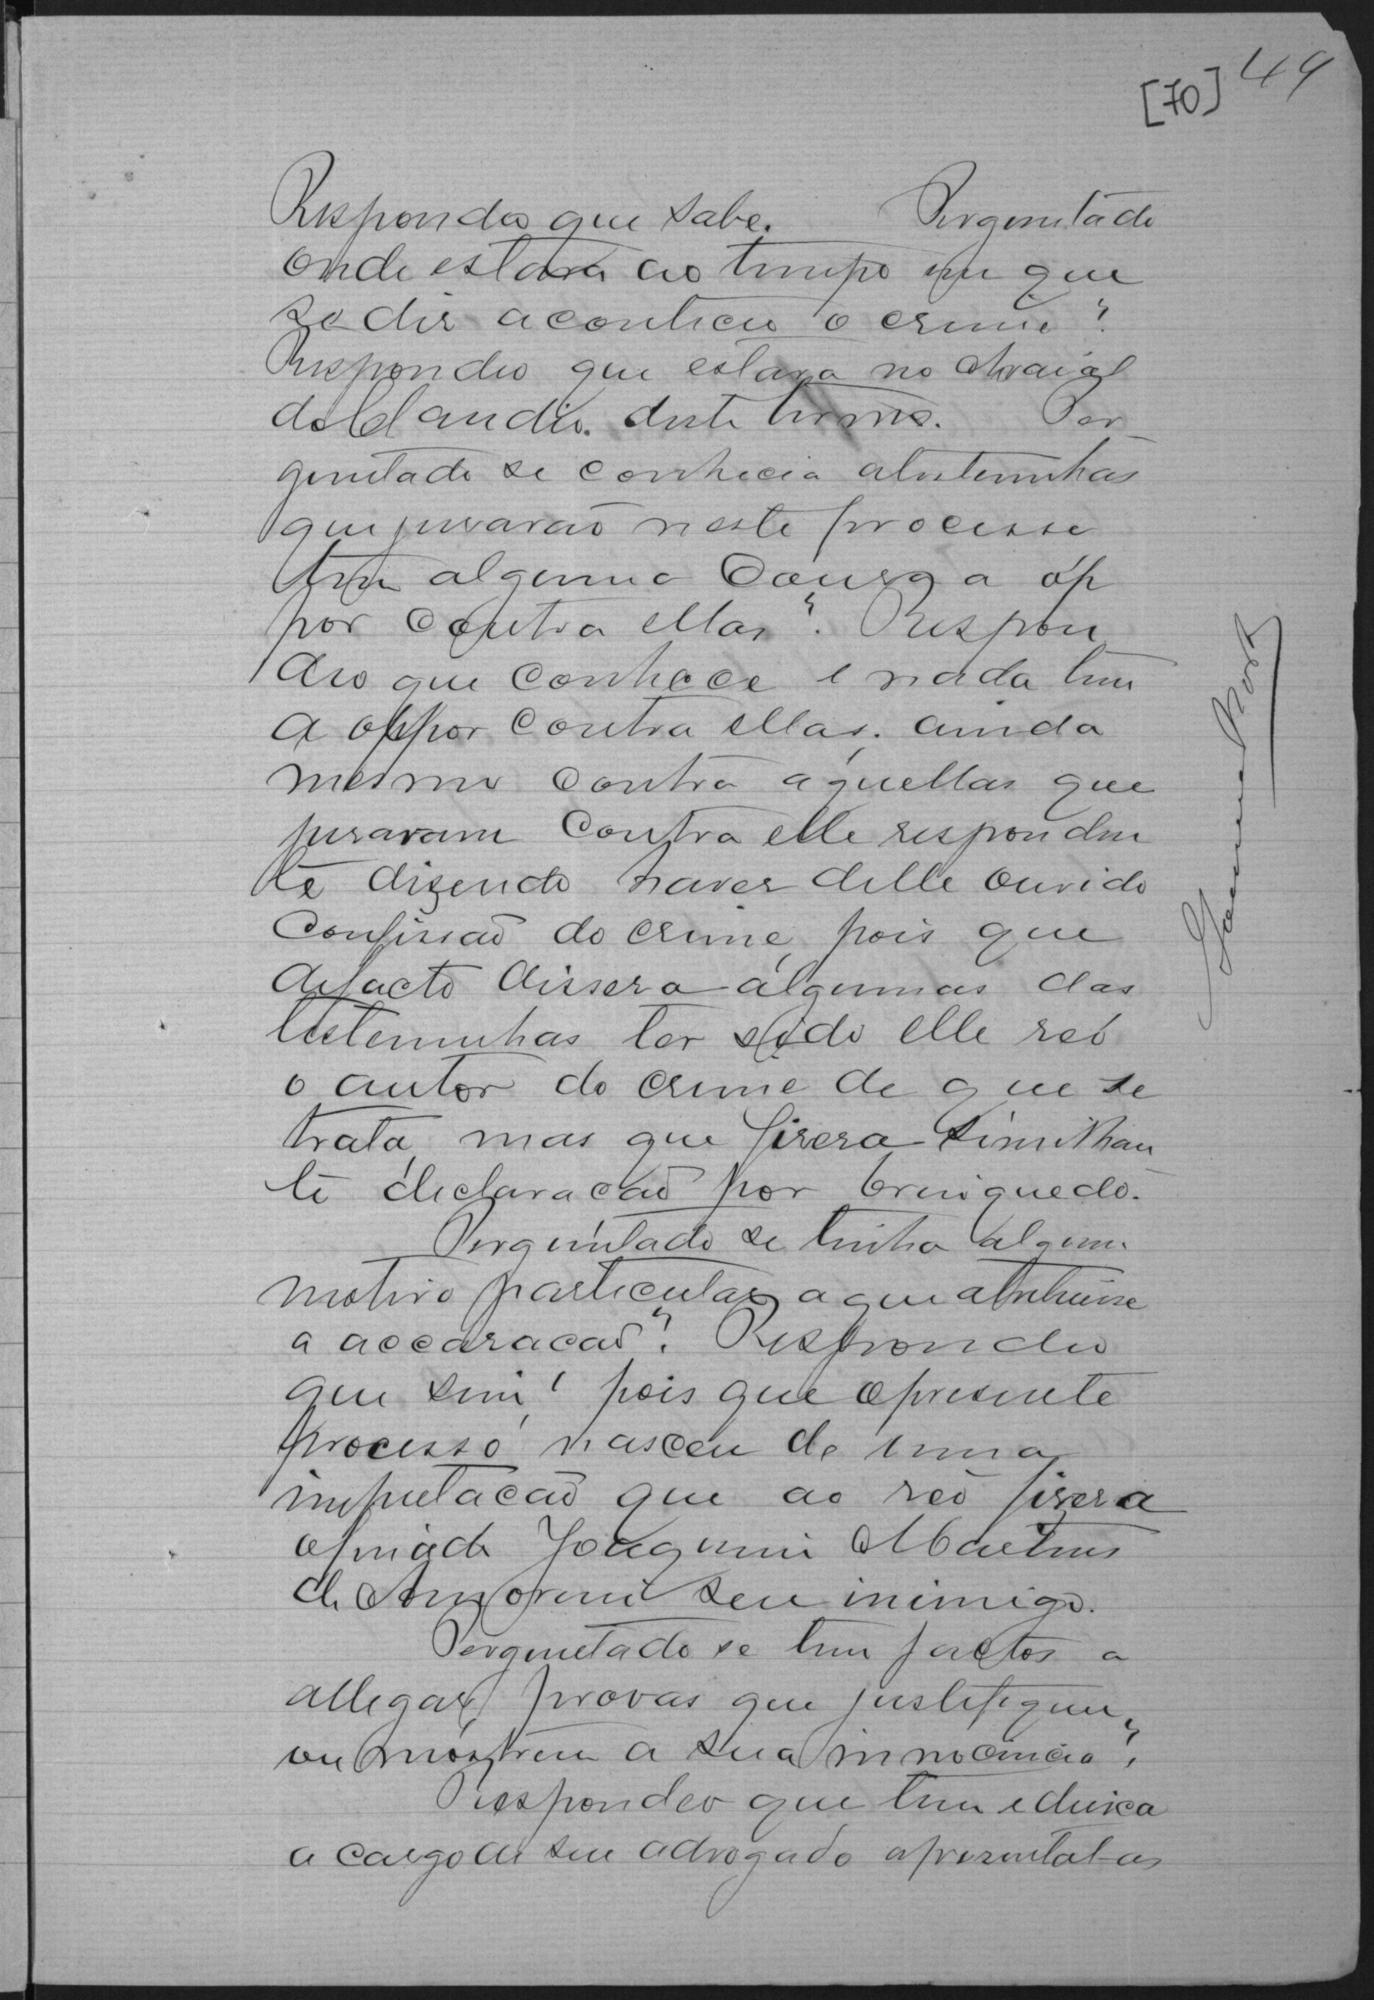 [70] 49
Respondeo que sabe. Perguntado
onde estava ao tempo em que
se diz aconteceu o crime?
Respondeo que estava no Arraial
do Claudio. deste termo. Per
guntado se conhecia as testemunhas
que jurarão neste processo
tem alguma cousa a op
por contra ellas? Respon
deo que conhece e nada tem
a oppor contra ellas, ainda
mesmo contra aquellas que
juraram contra elle responden
te dizendo haver delle ouvido
confissão do crime, pois que
defacto dissera a algumas das
testemunhas ter sido elle reo
o autor do crime de que se
trata, mas que fizera similhan
te declaracão por brinquedo.
Perguntado se tinha algum
motivo particular a que attribuisse
a accusacão? Respondeo
que sim, pois que o presente
processo nasceu de uma
imputacão que ao reo fizera
Joaquim Martins
de Amorim seu inimigo.
Perguntado se tem factos a
allegar, provas que justifiquem
ou mostrem a sua innocencia?
Respondeo que tem e deixa
a cargo de seu advogado apresental-as